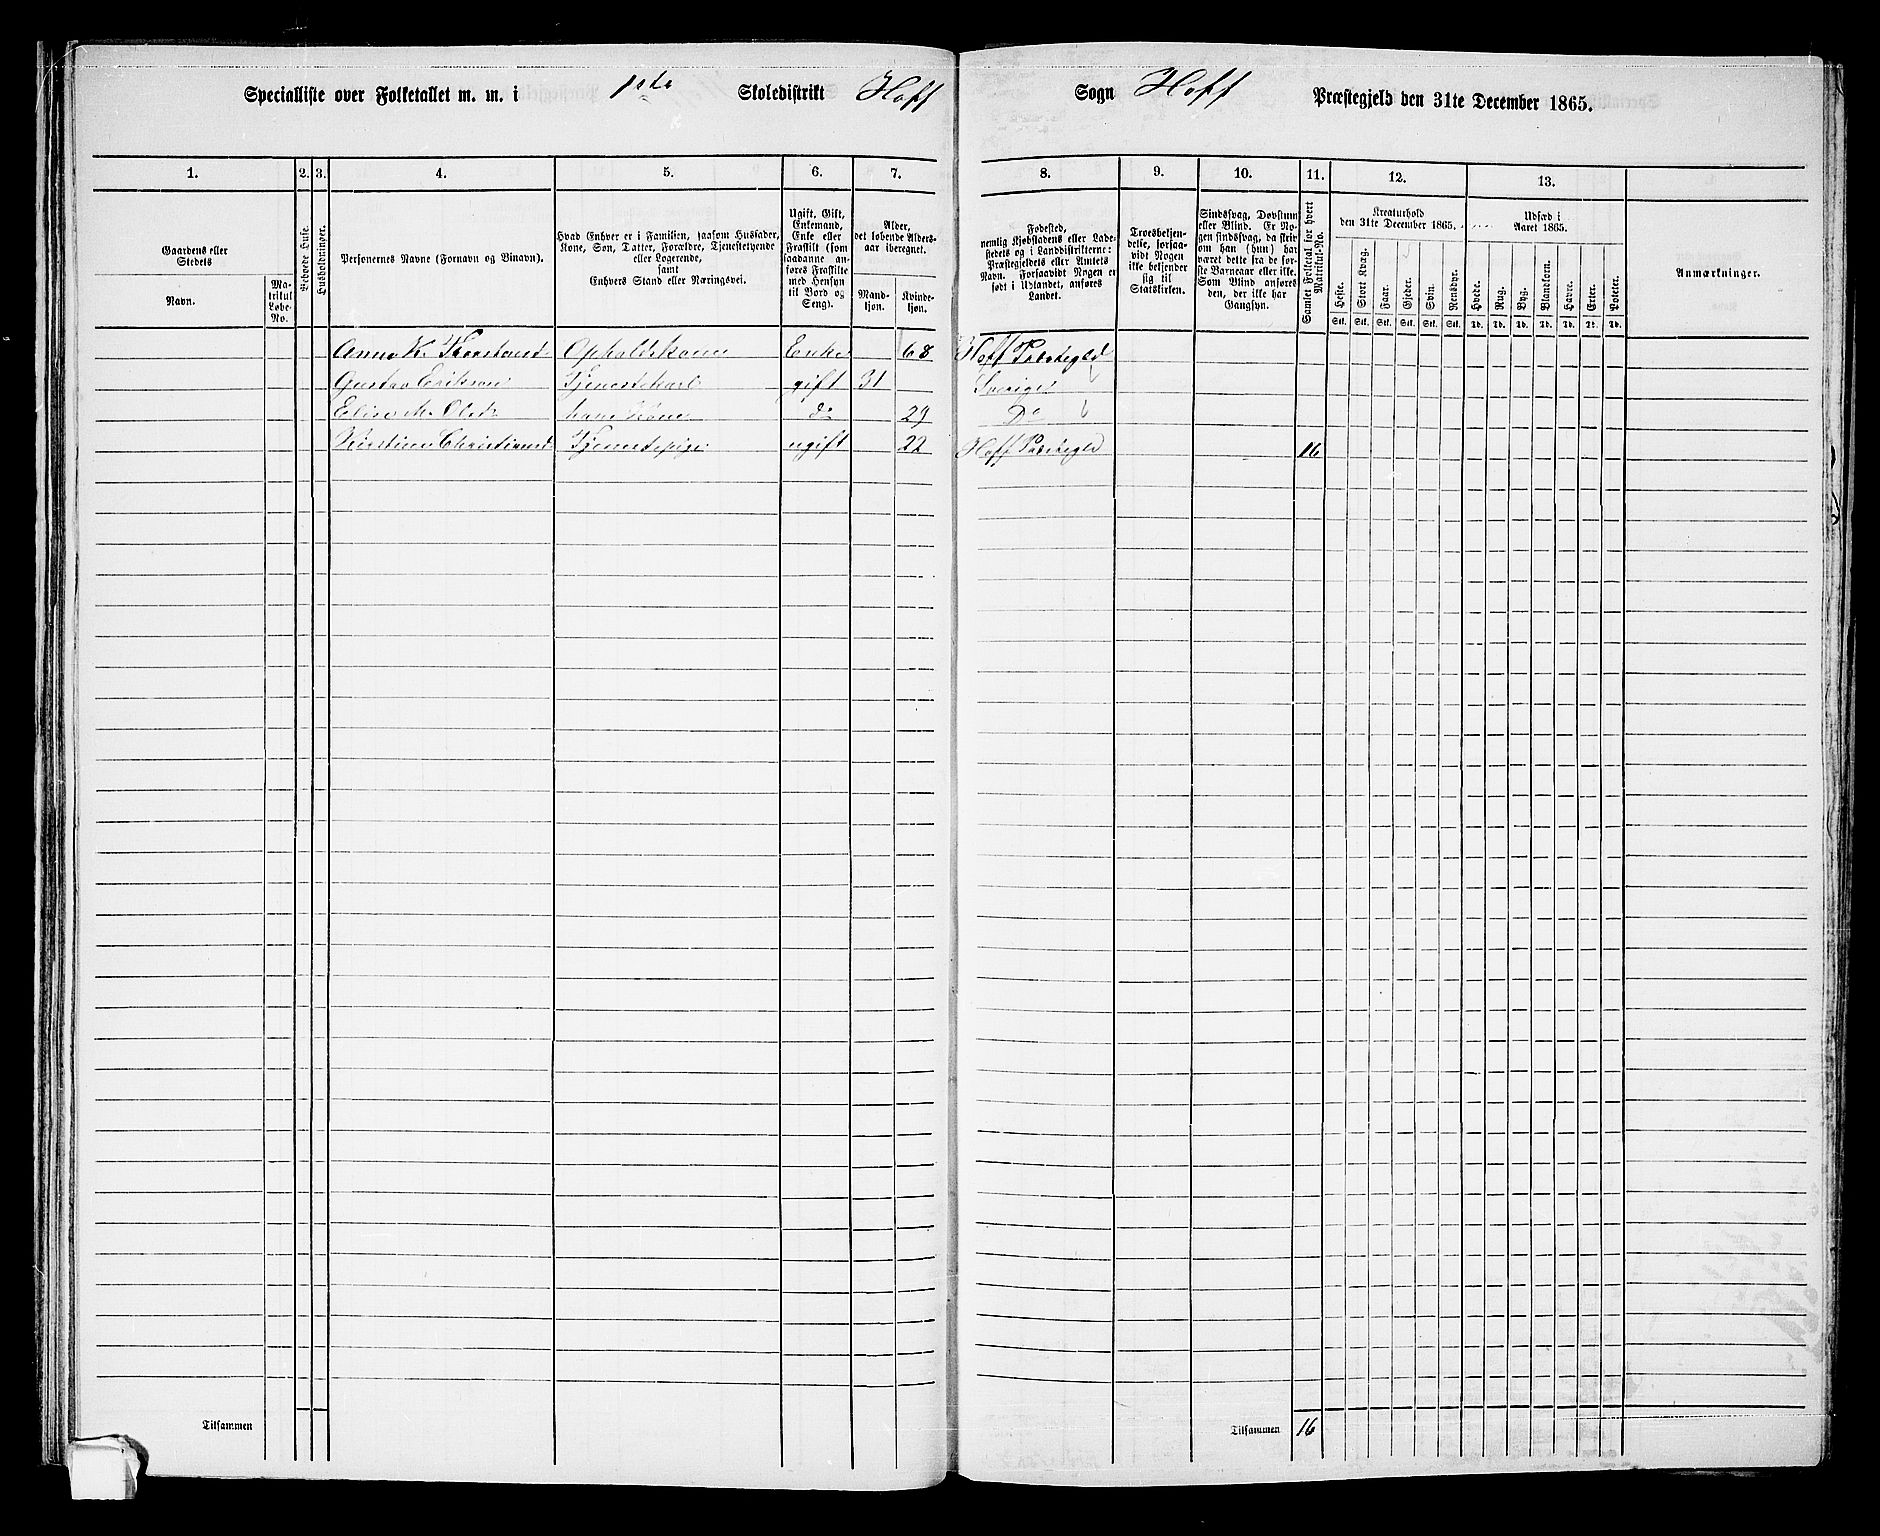 Specialliste over Folketallet m. m. i 1ste Skoledistrikt Hoff Sogn Hoff Præstegjeld den 31te December 1865.
1. 2. 3. 4. 5. 6. 7. 8. 9. 10. 11. 12. 13.
Gaardens eller Stedets
Navn.
Matrikul Løbe-No.
Beboede Huse.
Husholdninger.
Personernes Navne (Fornavn og Binavn).
Hvad Enhver er i Familien, saasom Husfader, Kone, Søn, Datter, Forældre, Tjenestetyende eller Logerende, samt Enhvers Stand eller Næringsvei.
Ugift, Gift, Enkemand, Enke eller Fraskilt (som saadanne anføres Fraskilte med Hensyn til Bord og Seng).
Alder, det løbende Aldersaar iberegnet.
Mandkjøn.
Kvindekjøn.
Fødested, nemlig Kjøbstadens eller Ladestedets og i Landdistrikterne: Præstegjeldets eller Amtets Navn. Forsaavidt Nogen er født i Udlandet, anføres Landet.
Troesbekjendelse, forsaavidt Nogen ikke bekjender sig til Statskirken.
Sindssvag, Døvstum eller Blind. Er Nogen sindssvag, da skrives om han (hun) har været dette fra de første Barneaar eller ikke. Som Blind anføres den, der ikke har Gangsyn.
Samlet Folketal for hvert Matrikul-No.
Kreaturhold den 31te December 1865.
Heste. Stort Kvæg. Faar. Gjeder. Svin. Rensdyr.
Stk. Stk. Stk. Stk. Stk. Stk.
Udsæd i Aaret 1865.
Hvede. Rug. Byg. Blandkorn. Havre. Erter. Poteter.
Td. Td. Td. Td. Td. Td. Td.
Anmærkninger.
Anna K. Opholdskone Enke 68 Hoff Præstegld
Gustav Erikson Tjenestekarl gift 31 Sverige
Olsdr hans Kone do 29 Do
Christiansd Tjenestepige ugift 22 Hoff Præstegld 16
Tilsammen Tilsammen 16